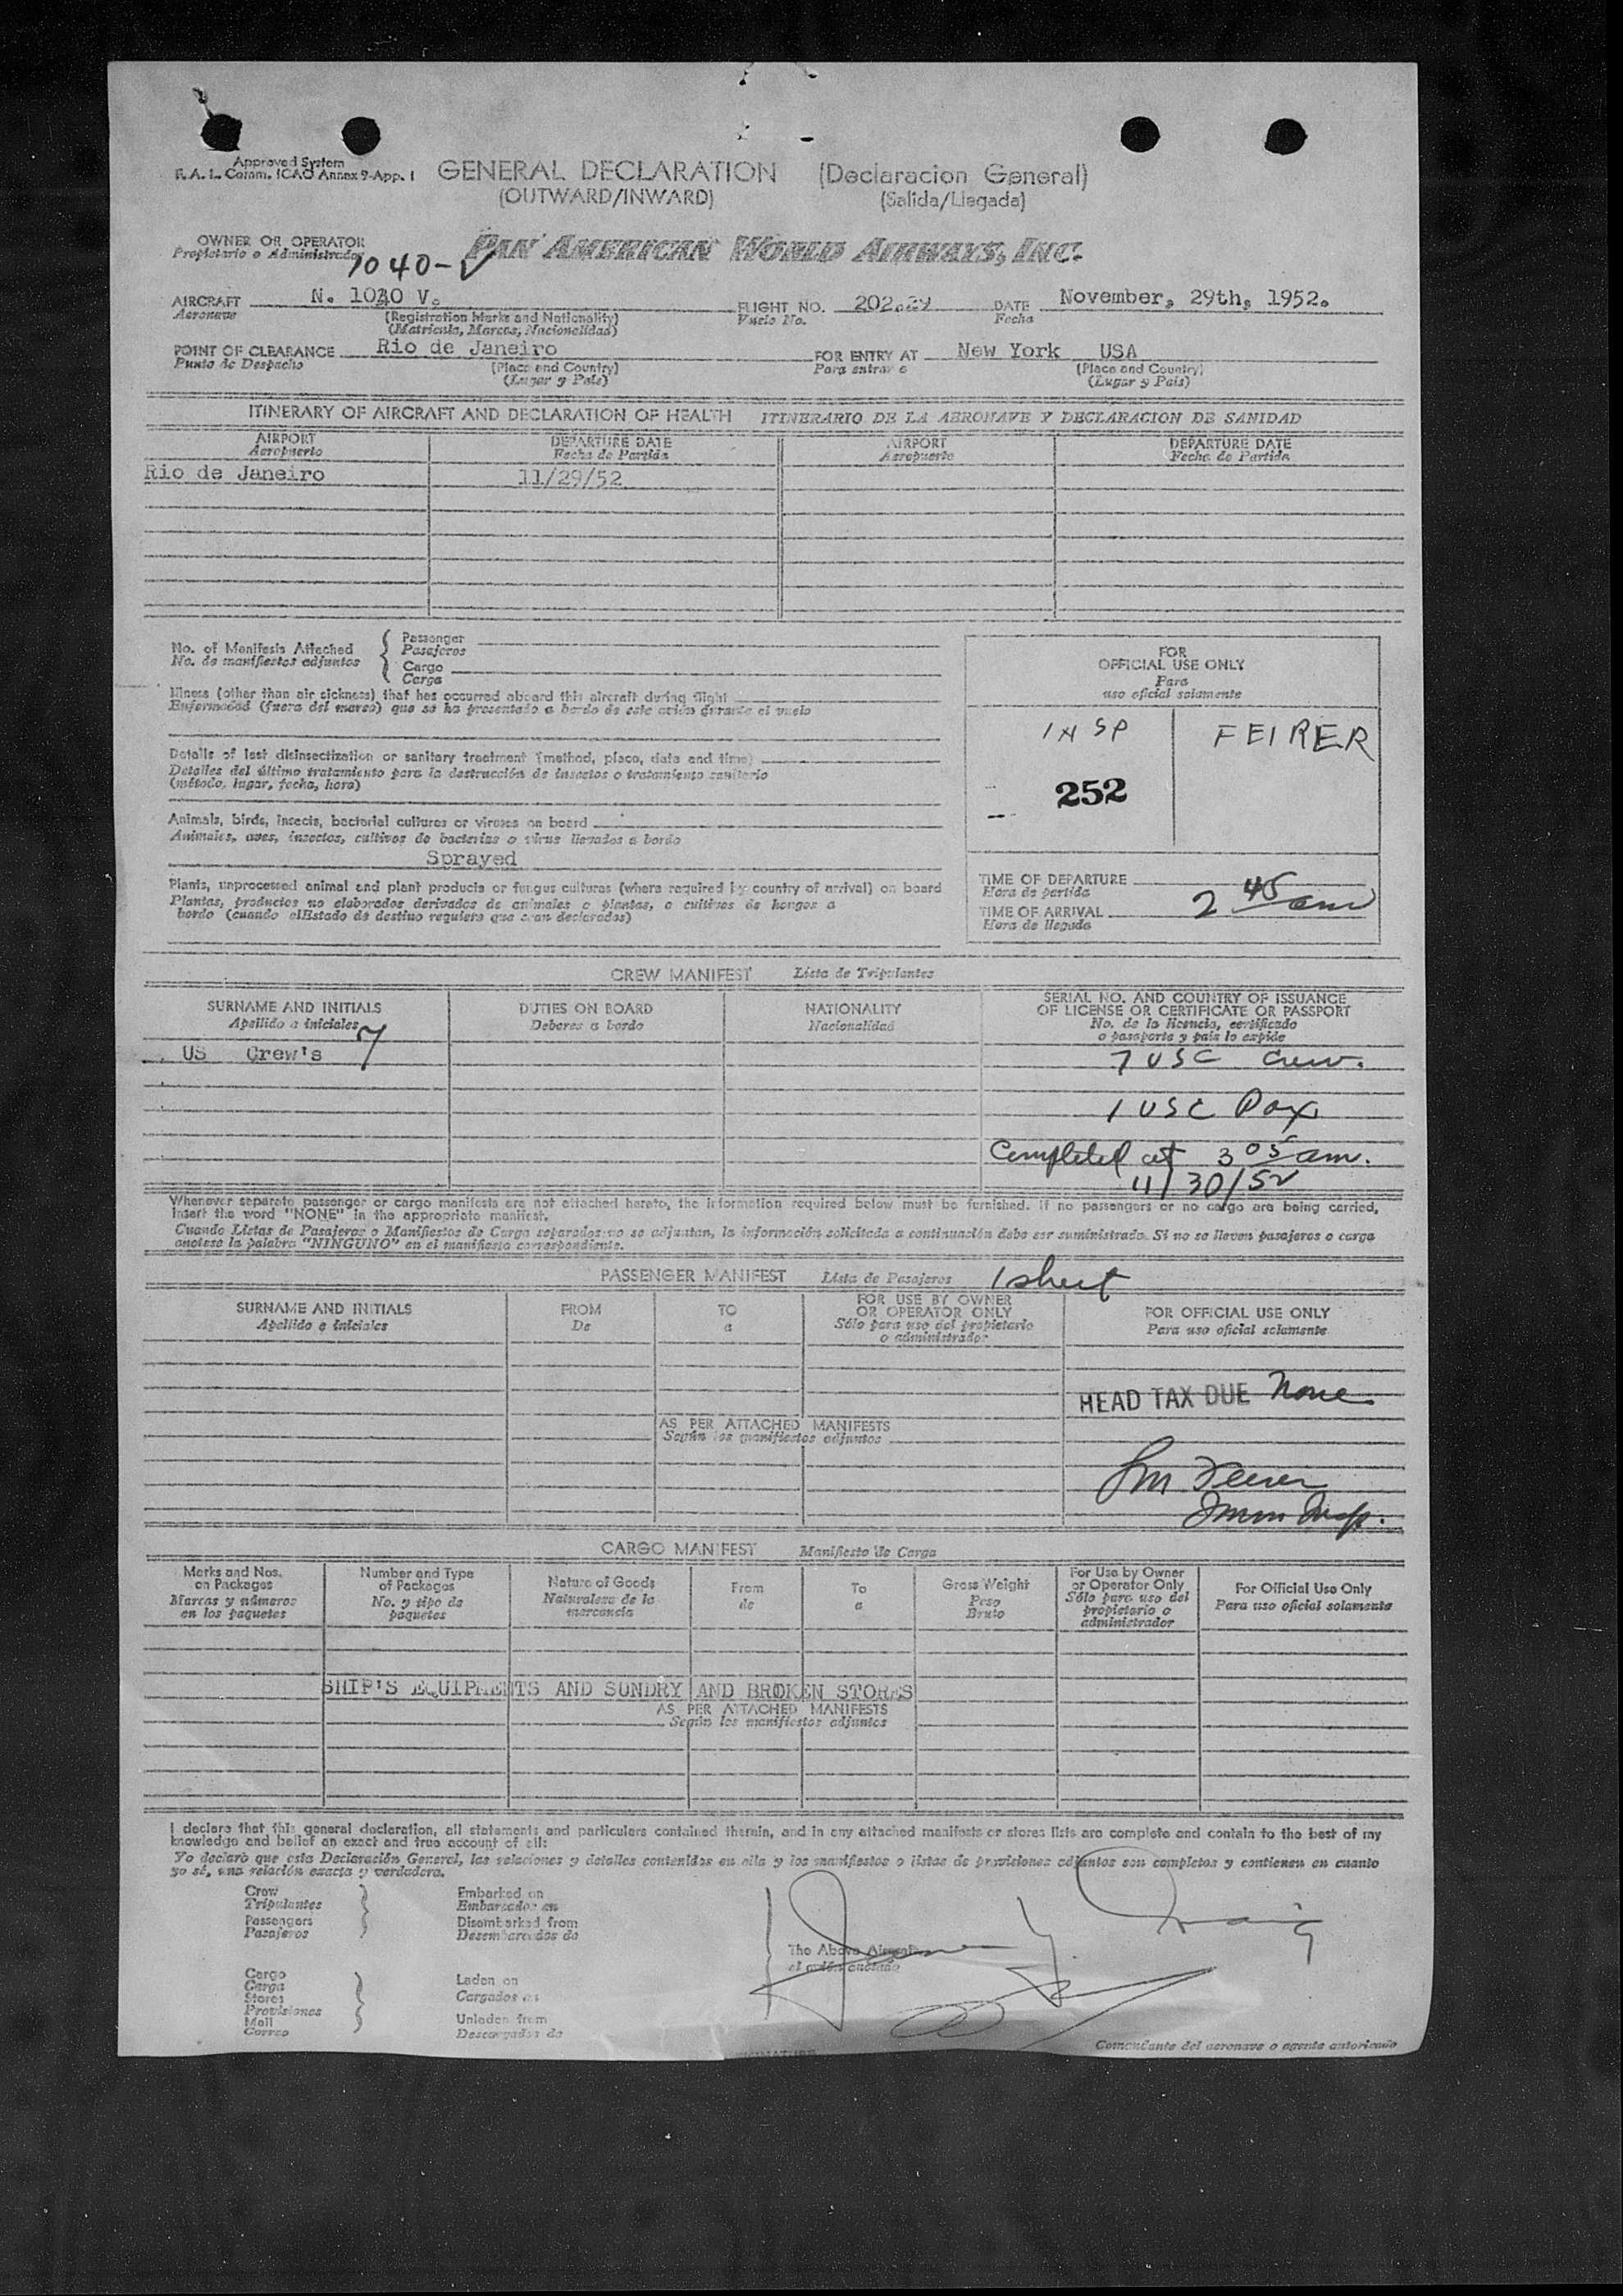 Approved System
F. A. L. Comm. ICAO Annex 9-App. 1
GENERAL DECLARATION (Declaracion General)
(OUTWARD/INWARD) (Salida/Llegada)
OWNER OR OPERATOR PAN AMERICAN WORLD AIRWAYS, INC.
Propietario o Administrador
1040-V
AIRCRAFT N. 1040 V. FLIGHT NO. 202.29 DATE November, 29th, 1952.
Aeronave (Registration Marks and Nationality) Vuelo No. Fecha
(Matricula, Marcas, Nacionalidad)
POINT OF CLEARANCE Rio de Janeiro FOR ENTRY AT New York USA
Punto de Despacho (Place and Country) Para entrar a (Place and Country)
(Lugar y País) (Lugar y País)
ITINERARY OF AIRCRAFT AND DECLARATION OF HEALTH ITINERARIO DE LA AERONAVE Y DECLARACION DE SANIDAD
AIRPORT DEPARTURE DATE AIRPORT DEPARTURE DATE
Aeropuerto Fecha de Partida Aeropuerto Fecha de Partida
Rio de Janeiro 11/29/52
No. of Manifests Attached
No. de manifiestos adjuntos
Passenger
Pasajeros
Cargo
Carga
Illness (other than air sickness) that has occurred aboard this aircraft during flight
Enfermedad (fuera del mareo) que se ha presentado a bordo de este avión durante el vuelo
Details of last disinsectization or sanitary treatment (method, place, date and time)
Detalles del último tratamiento para la destrucción de insectos o tratamiento sanitario
(método, lugar, fecha, hora)
Animals, birds, insects, bacterial cultures or viruses on board
Animales, aves, insectos, cultivos de bacterias o virus llevados a bordo
Sprayed
Plants, unprocessed animal and plant products or fungus cultures (where required by country of arrival) on board
Plantas, productos no elaborados derivados de animales o plantas, o cultivos de hongos a
bordo (cuando elEstado de destino requiera que sean declarados)
FOR
OFFICIAL USE ONLY
Para
uso oficial solamente
INSP FEIRER
252
TIME OF DEPARTURE
Hora de partida
TIME OF ARRIVAL 2 45 am
Hora de llegada
CREW MANIFEST Lista de Tripulantes
SURNAME AND INITIALS DUTIES ON BOARD NATIONALITY SERIAL NO. AND COUNTRY OF ISSUANCE
OF LICENSE OR CERTIFICATE OR PASSPORT
Apellido a iniciales Deberes a bordo Nacionalidad No. de la licencia, certificado
o pasaporte y país lo expide
US Crew's 7 7 USC Crew.
1 USC Pax
Completed at 3 05 am.
11/30/52
Whenever separate passenger or cargo manifests are not attached hereto, the information required below must be furnished. If no passengers or no cargo are being carried,
insert the word "NONE" in the appropriate manifest.
Cuando Listas de Pasajeros o Manifiestos de Carga separados no se adjuntan, la información solicitada a continuación debe ser suministrada. Si no se lleven pasajeros o carga
anotese la palabra "NINGUNO" en el manifiesto correspondiente.
PASSENGER MANIFEST Lista de Pasajeros 1 sheet
SURNAME AND INITIALS FROM TO FOR USE BY OWNER
OR OPERATOR ONLY FOR OFFICIAL USE ONLY
Apellido e iniciales De a Sólo para uso del propietario
o administrador Para uso oficial solamente
HEAD TAX DUE None
AS PER ATTACHED MANIFESTS
Según los manifiestos adjuntos
Feirer
Imm Insp.
CARGO MANIFEST Manifiesto de Carga
Marks and Nos.
on Packages
Marcas y números
en los paquetes
Number and Type
of Packages
No. y tipo de
paquetes
Nature of Goods
Naturaleza de la
mercancia
From
de
To
a
Gross Weight
Peso
Bruto
For Use by Owner
or Operator Only
Sólo para uso del
propietario o
administrador
For Official Use Only
Para uso oficial solamente
SHIP'S EQUIPMENTS AND SUNDRY AND BROKEN STORES
AS PER ATTACHED MANIFESTS
Según los manifiestos adjuntos
I declare that this general declaration, all statements and particulars contained therein, and in any attached manifests or stores lists are complete and contain to the best of my
knowledge and belief an exact and true account of all:
Yo declaro que esta Declaración General, las relaciones y detalles contenidos en ella y los manifiestos o listas de provisiones adjuntos son completos y contienen en cuanto
yo sé, una relación exacta y verdadera.
Crew
Tripulantes
Passengers
Pasajeros
Embarked on
Embarcados en
Disembarked from
Desembarcados de
The Above Aircraft
el avión anotado
Cargo
Carga
Stores
Provisiones
Mail
Correo
Laden on
Cargados en
Unladen from
Descargados de
SIGNATURE
Comandante del aeronave o agente autorizado